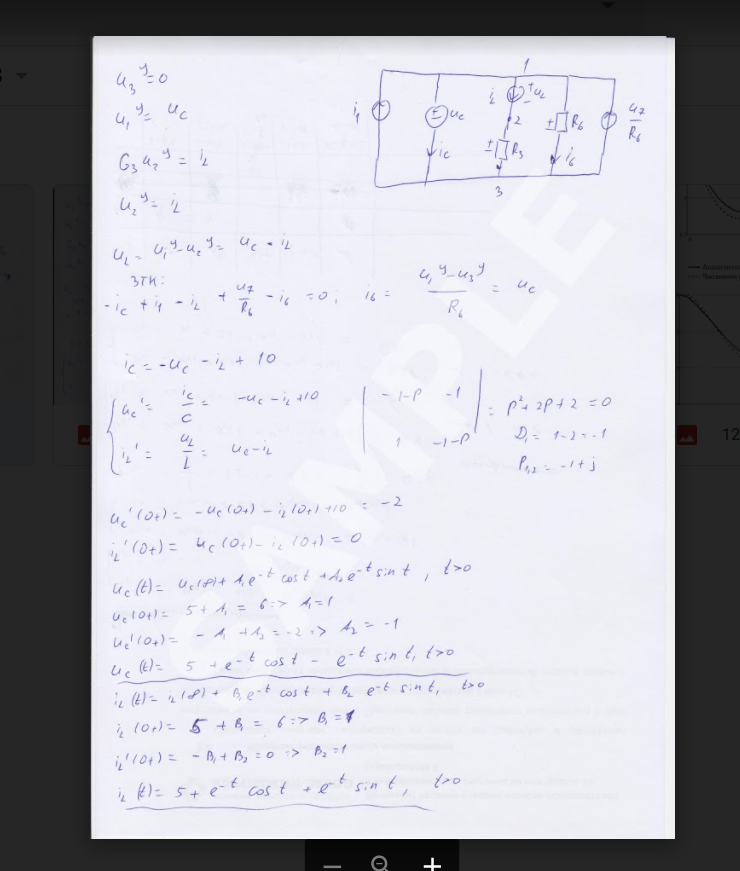 u₃ʸ=0
u₁ʸ= u_C
G₃u₂ʸ= i_L
u₂ʸ= i_L
u_L= u₁ʸ-u₂ʸ= u_C - i_L
ЗТК:
-i_C + i₁ - i_L + u₇/R₆ - i₆ =0; i₆ = (u₁ʸ-u₃ʸ)/R₆ = u_C
1
i₁
± u_C
i_C
i_L
+ u_L -
2
± R₃
± R₆
i₆
u₇/R₆
3
i_C= -u_C - i_L + 10
u_C'= i_C/C = -u_C-i_L+10
i_L'= u_L/L = u_C-i_L
| -1-P -1 |
| 1 -1-P |
= P²+2P+2 =0
D₁= 1-2=-1
P₁,₂= -1+j
u_C'(0+)= -u_C(0+)-i_L(0+)+10 = -2
i_L'(0+)= u_C(0+)-i_L(0+)=0
u_C(t)= u_C(∞)+A₁e⁻ᵗcos t+A₂e⁻ᵗsin t, t>0
u_C(0+)= 5+A₁ = 6=> A₁=1
u_C'(0+)= -A₁+A₂=-2=> A₂=-1
u_C(t)= 5+e⁻ᵗ cos t - e⁻ᵗ sin t, t>0
i_L(t)= i_L(∞)+ B₁e⁻ᵗ cos t + B₂ e⁻ᵗ sin t, t>0
i_L(0+)= 5 +B₁ = 6=> B₁=1
i_L'(0+)= -B₁+B₂=0=> B₂=1
i_L(t)= 5+ e⁻ᵗ cos t + e⁻ᵗ sin t, t>0
SAMPLE
12